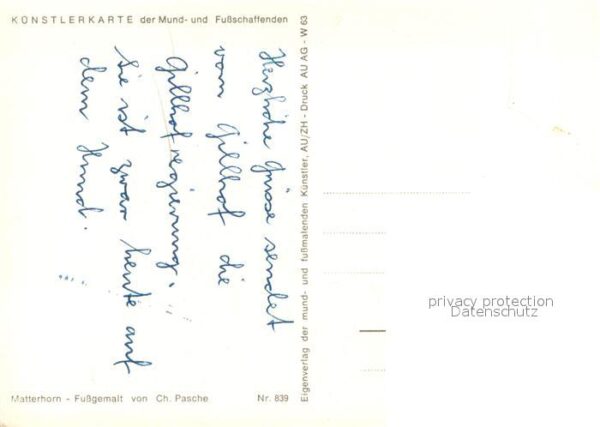 KÜNSTLERKARTE der Mund- und Fußschaffenden
Herzliche Grüsse sendet
vom Gillhof die
Gillhofregierung.
Sie ist zwar heute auf
dem Hund.
Matterhorn - Fußgemalt von Ch. Pasche Nr. 839
Eigenverlag der mund- und fußmalenden Künstler, AU/ZH - Druck AU AG - W 63
privacy protection
Datenschutz